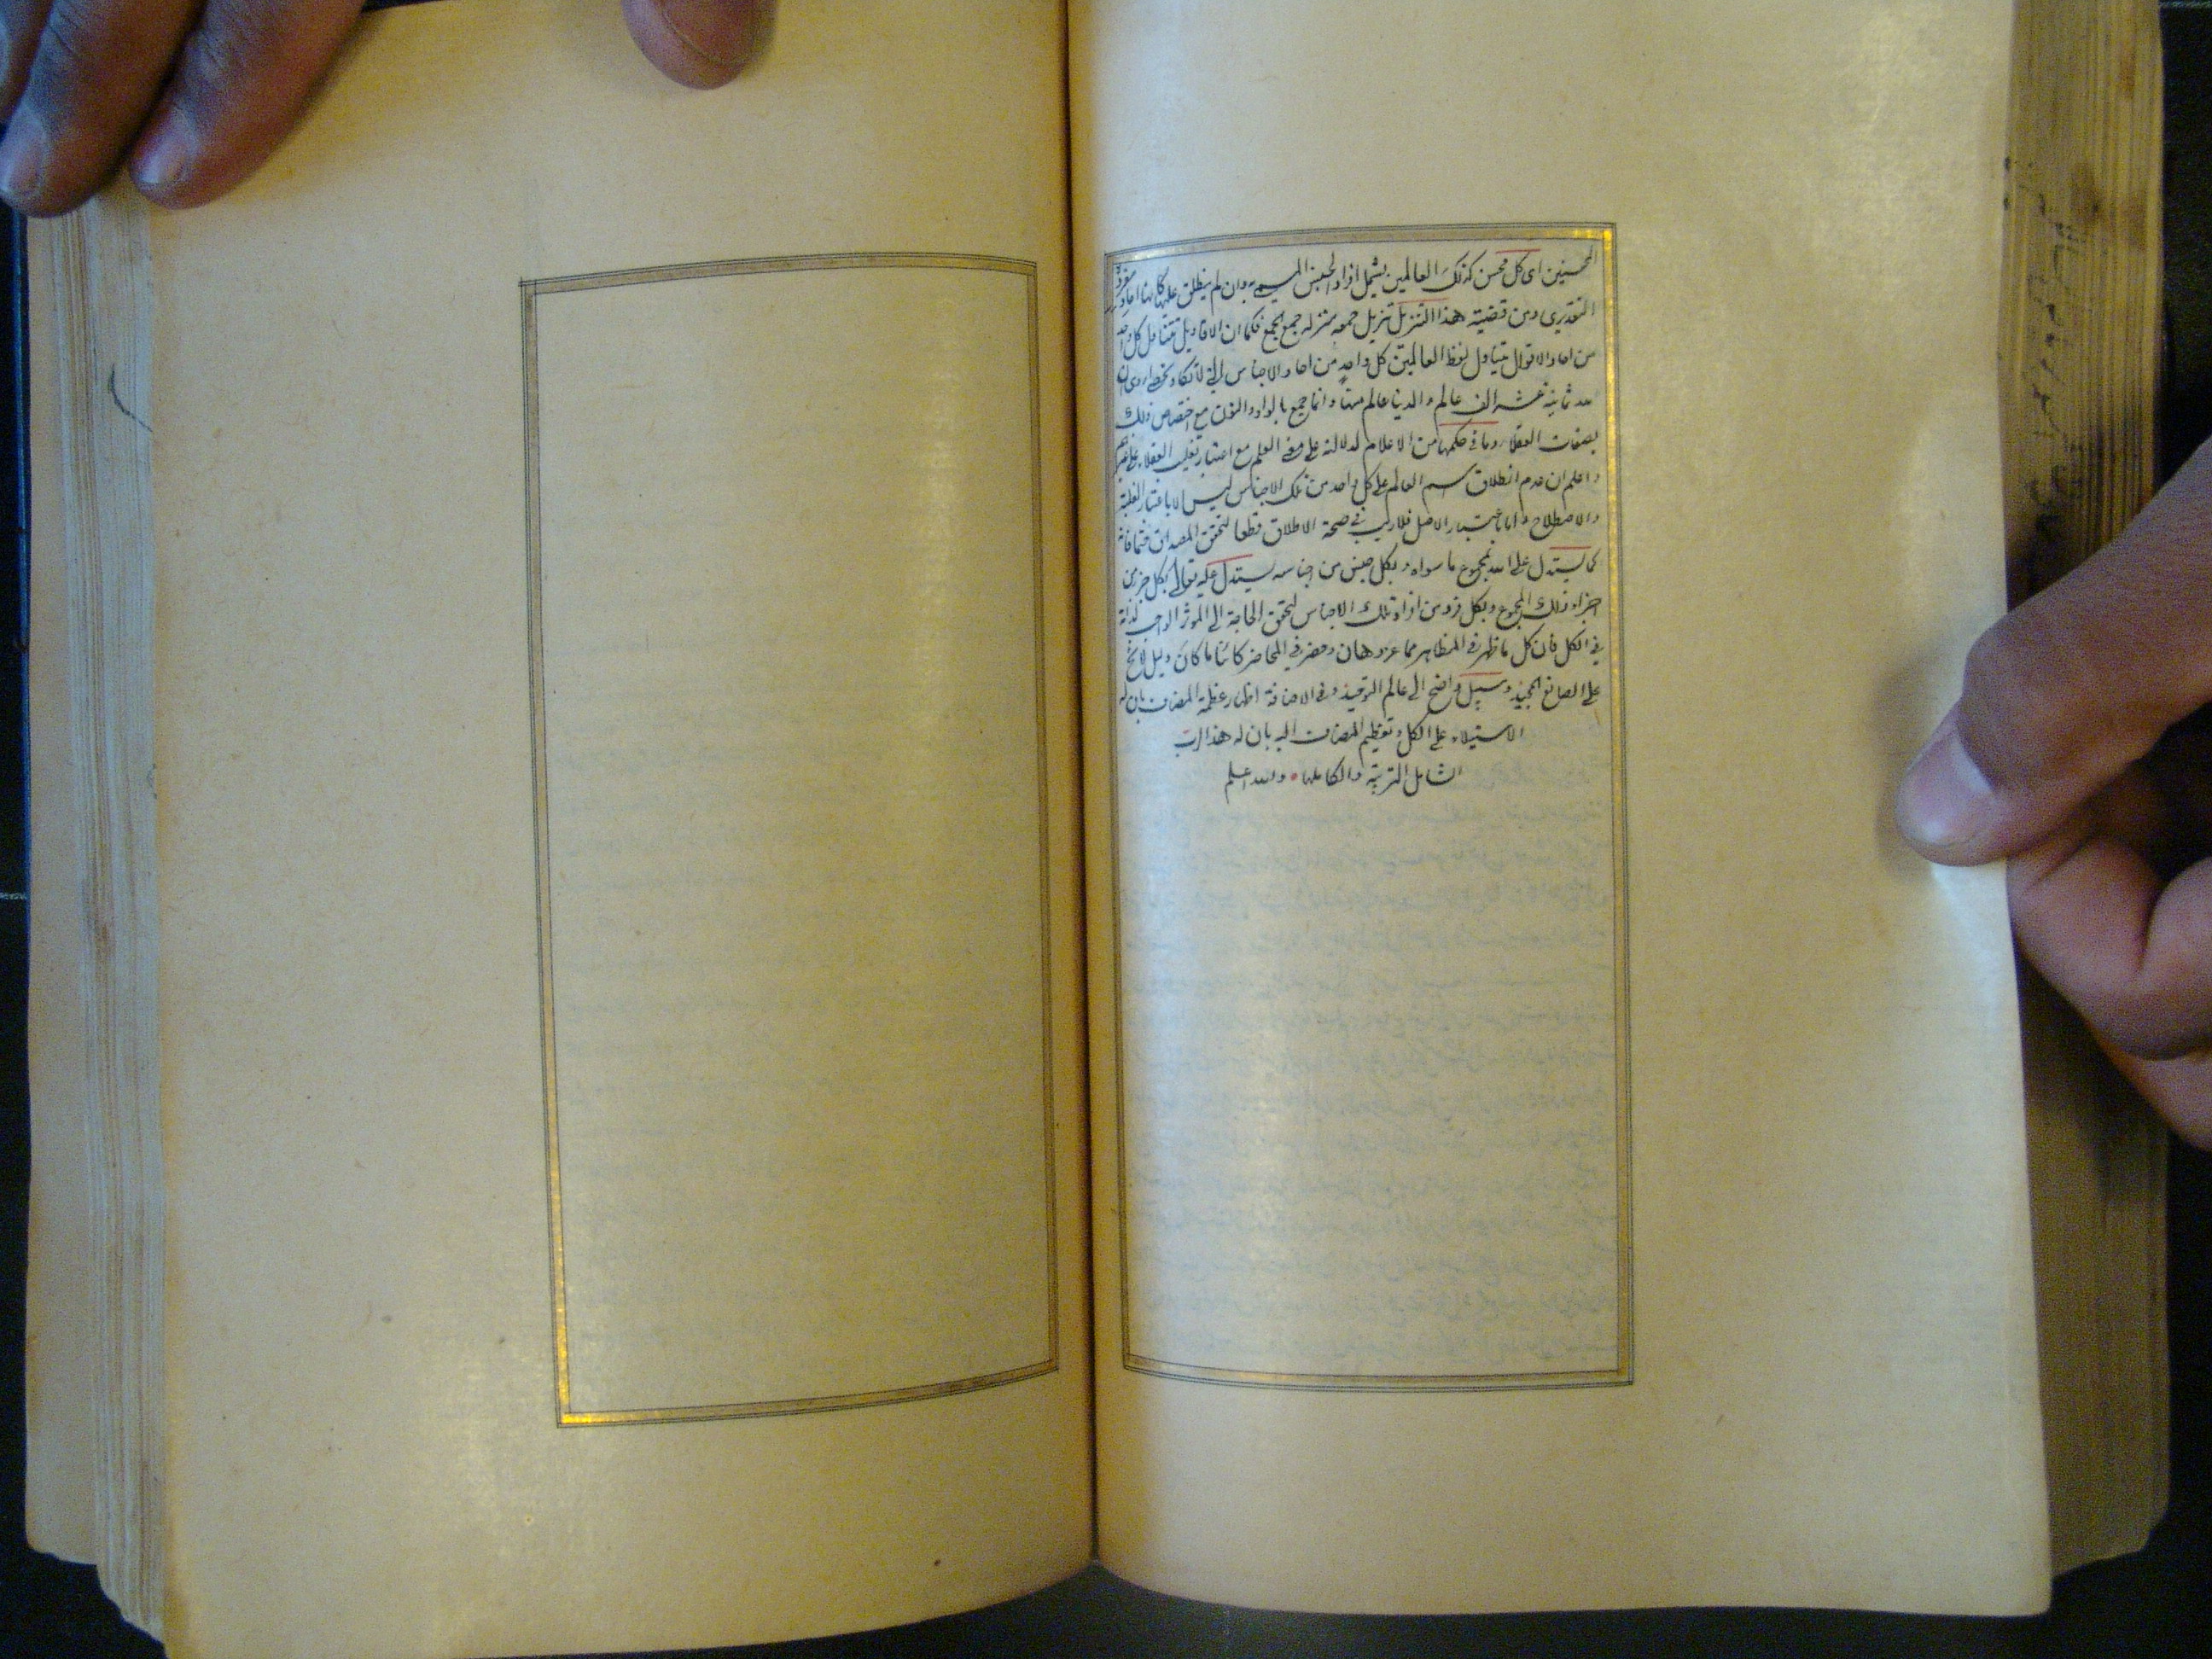 المحسنين اى كل محسن كذلك العالمين يشمل افراد الجنس المسمى به وان لم ينطلق عليها كانها احاد مفرده
التقديرى ومن قضية هذا التنزيل تنزيل جمعه منزله جمع الجمع فكما ان الاقاويل تتناول كل واحد
من احاد الاقوال يتناول لفظ العالمين كل واحد من احاد الاجناس التى لا تكاد تحصى روى ان
لله ثمانية عشر الف عالم والدنيا عالم منها وانما جمع بالواو والنون مع اختصاص ذلك
بصفات العقلاء وما فى حكمها من الاعلام لدلالته على معنى العلم مع اعتبار تغليب العقلاء على غيرهم
واعلم ان عدم انطلاق اسم العالم على كل واحد من تلك الاجناس ليس الا باعتبار الغلبة
والاصطلاح واما باعتبار الاصل فلا ريب فى صحة الاطلاق قطعا لتحقق المصداق حتما فانه
كما يستدل على الله بمجموع ما سواه وبكل جنس من اجناسه يستدل عليه تعالى بكل جزء من
اجزاء ذلك المجموع وبكل فرد من افراد تلك الاجناس لتحقق الحاجة الى الموثر الواجب لذاته
فى الكل فان كل ما ظهر فى المظاهر مما عز وهان وحضر فى المحاضر كائنا ما كان دليل لائح
على الصانع المجيد وسبيل واضح الى عالم التوحيد وفى الاضافة اظهار عظمة المضاف بان له
الاستيلاء على الكل وتعظيم المضاف اليه بان له هذا الرب
الشامل التربية والكاملها والله اعلم